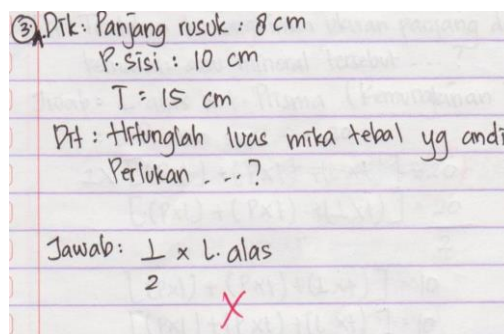 ③ Dik: Panjang rusuk: 8 cm
P. sisi : 10 cm
T = 15 cm
Dit : Hitunglah luas mika tebal yg andi
Perlukan ...?
Jawab: 1/2 x L. alas